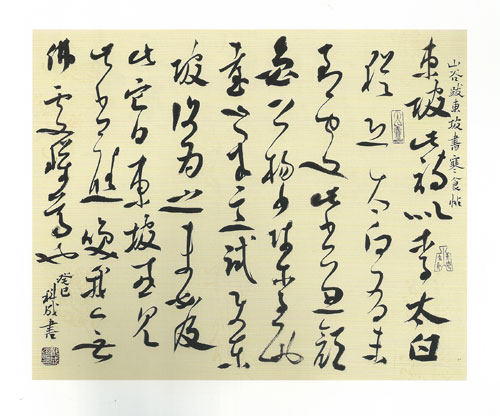 山谷跋東坡書寒食帖
東坡此詩似李太白
猶恐太白有未
到處此書兼顏
魯公楊少師李西
臺筆意試使東
坡復為之未必及
此它日東坡或見
此書應笑我於無
佛處稱尊也
癸巳
成書